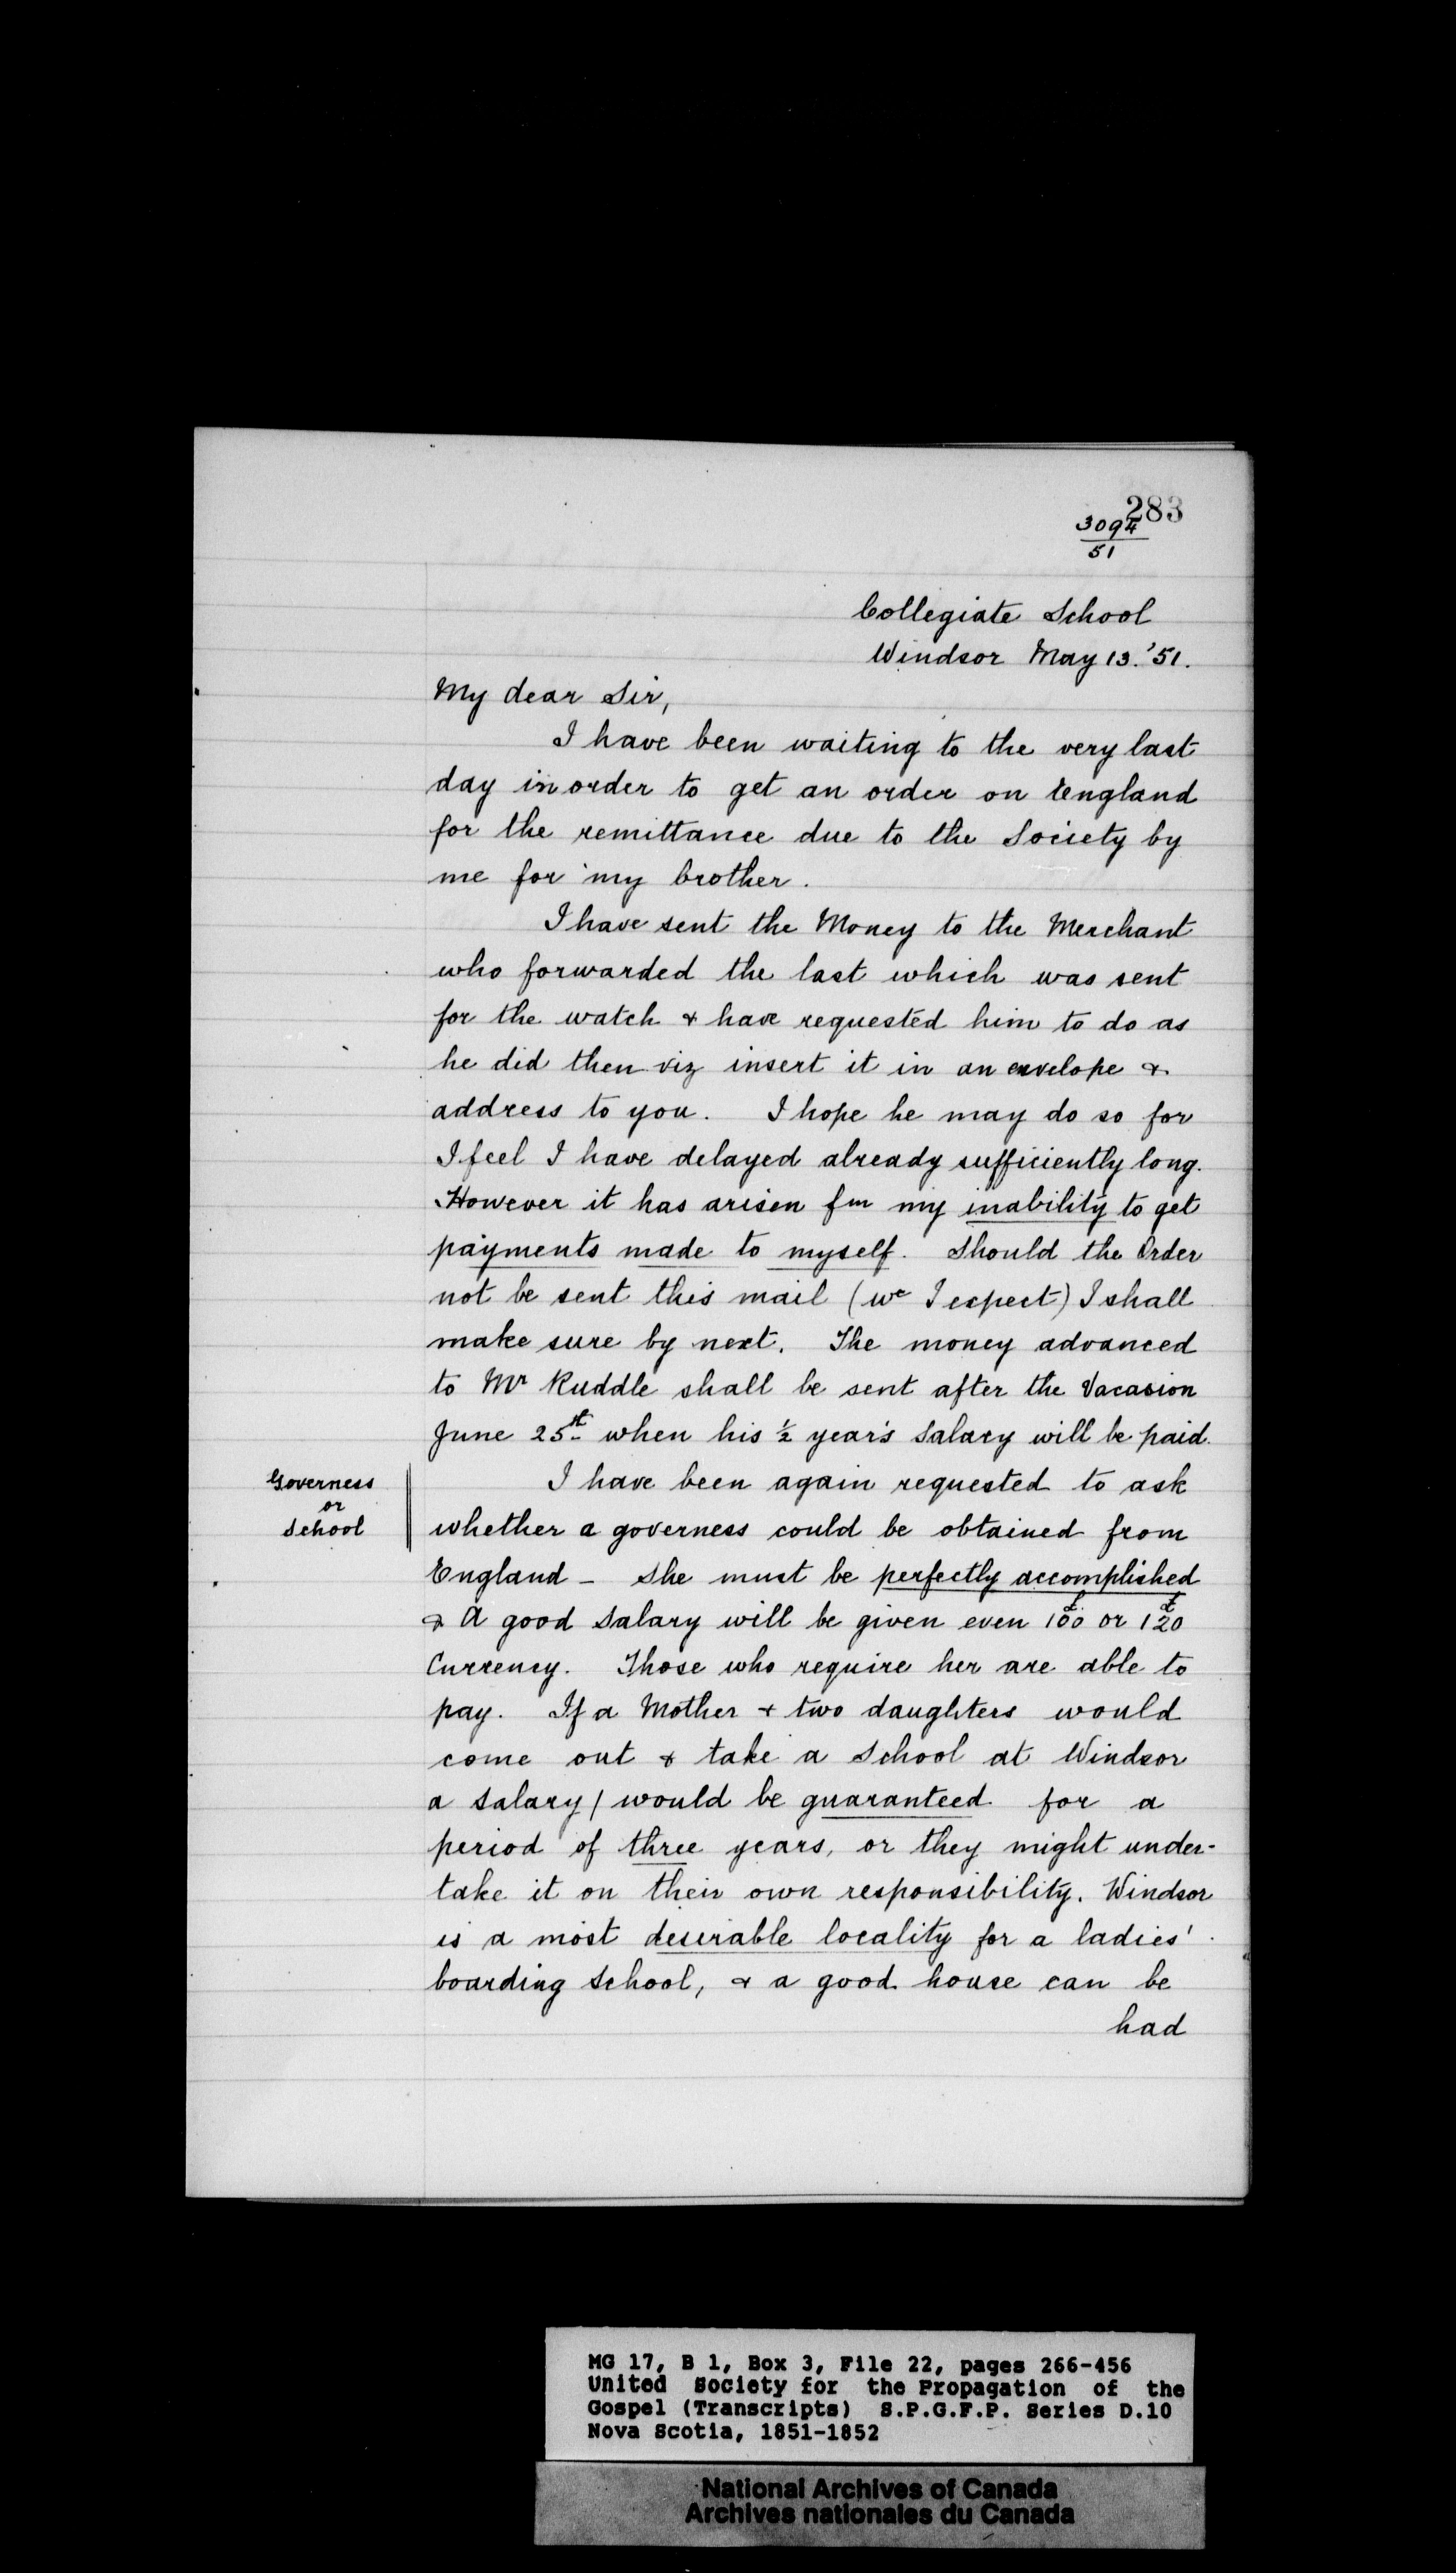 283
3094
51
Collegiate School
Windsor May 13.'51.
My dear Sir,
I have been waiting to the very last
day in order to get an order on England
for the remittance due to the Society by
me for my brother.
I have sent the Money to the Merchant
who forwarded the last which was sent
for the watch & have requested him to do as
he did then viz insert it in an envelope &
address to you. I hope he may do so for
I feel I have delayed already sufficiently long.
However it has arisen fm my inability to get
payments made to myself. Should the Order
not be sent this mail (wc I expect) I shall
make sure by next. The money advanced
to Mr Ruddle shall be sent after the Vacasion
June 25th when his ½ year's salary will be paid.
Governess
or
School
I have been again requested to ask
whether a governess could be obtained from
England - She must be perfectly accomplished
& A good salary will be given even 100£ or 120£
Currency. Those who require her are able to
pay. If a Mother & two daughters would
come out & take a School at Windsor
a salary / would be guaranteed for a
period of three years, or they might under-
take it on their own responsibility. Windsor
is a most desirable locality for a ladies'
boarding School, & a good house can be
had
MG 17, B 1, Box 3, File 22, pages 266-456
United Society for the Propagation of the
Gospel (Transcripts) S.P.G.F.P. Series D.10
Nova Scotia, 1851-1852
National Archives of Canada
Archives nationales du Canada